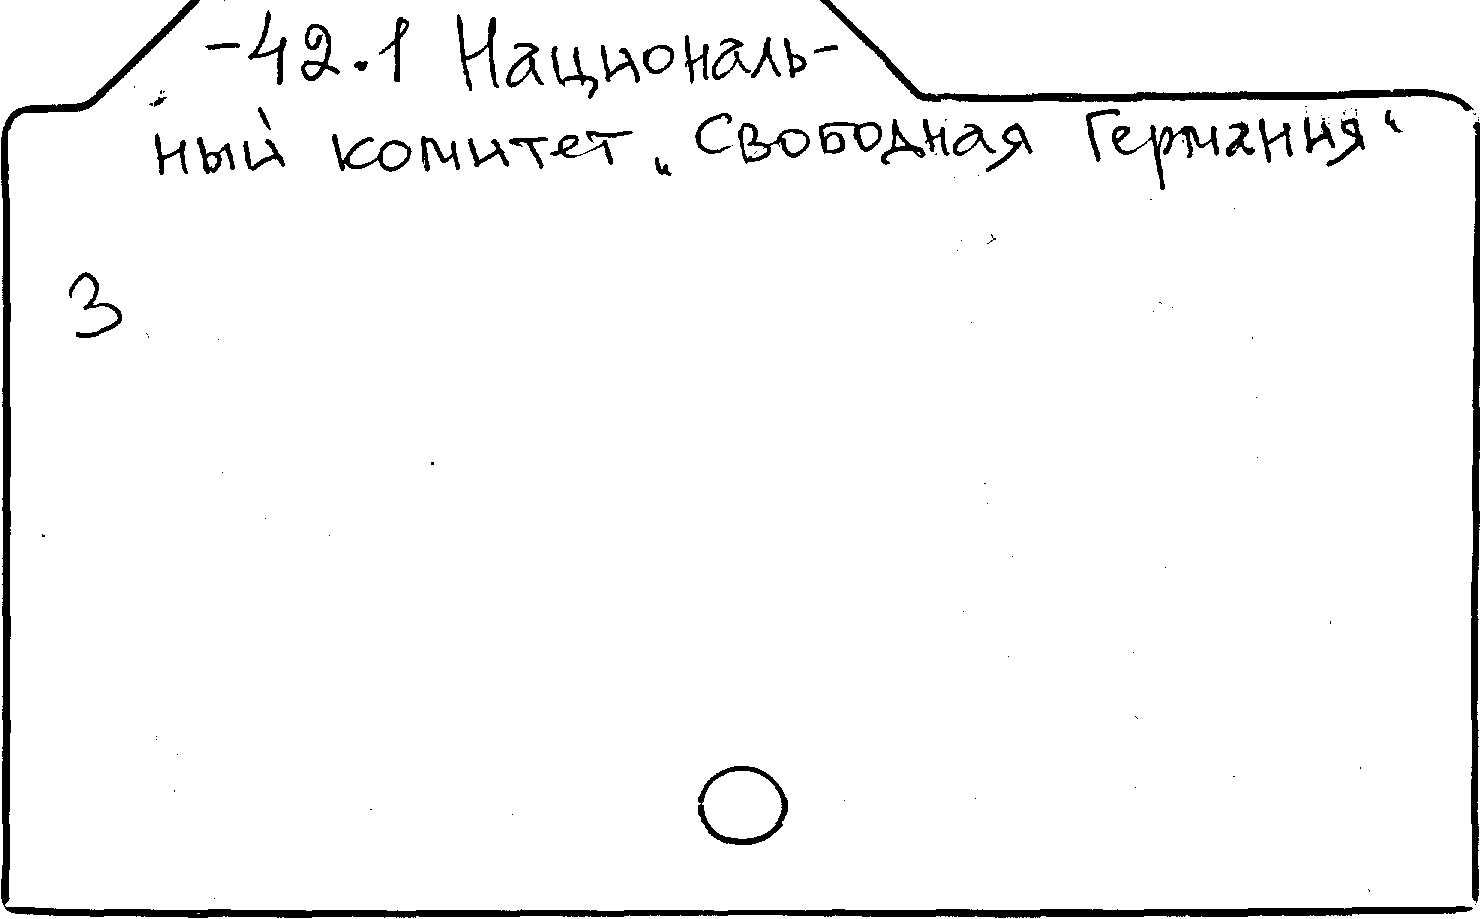 -42.1 Националь-
ный комитет „Свободная Германия“
3